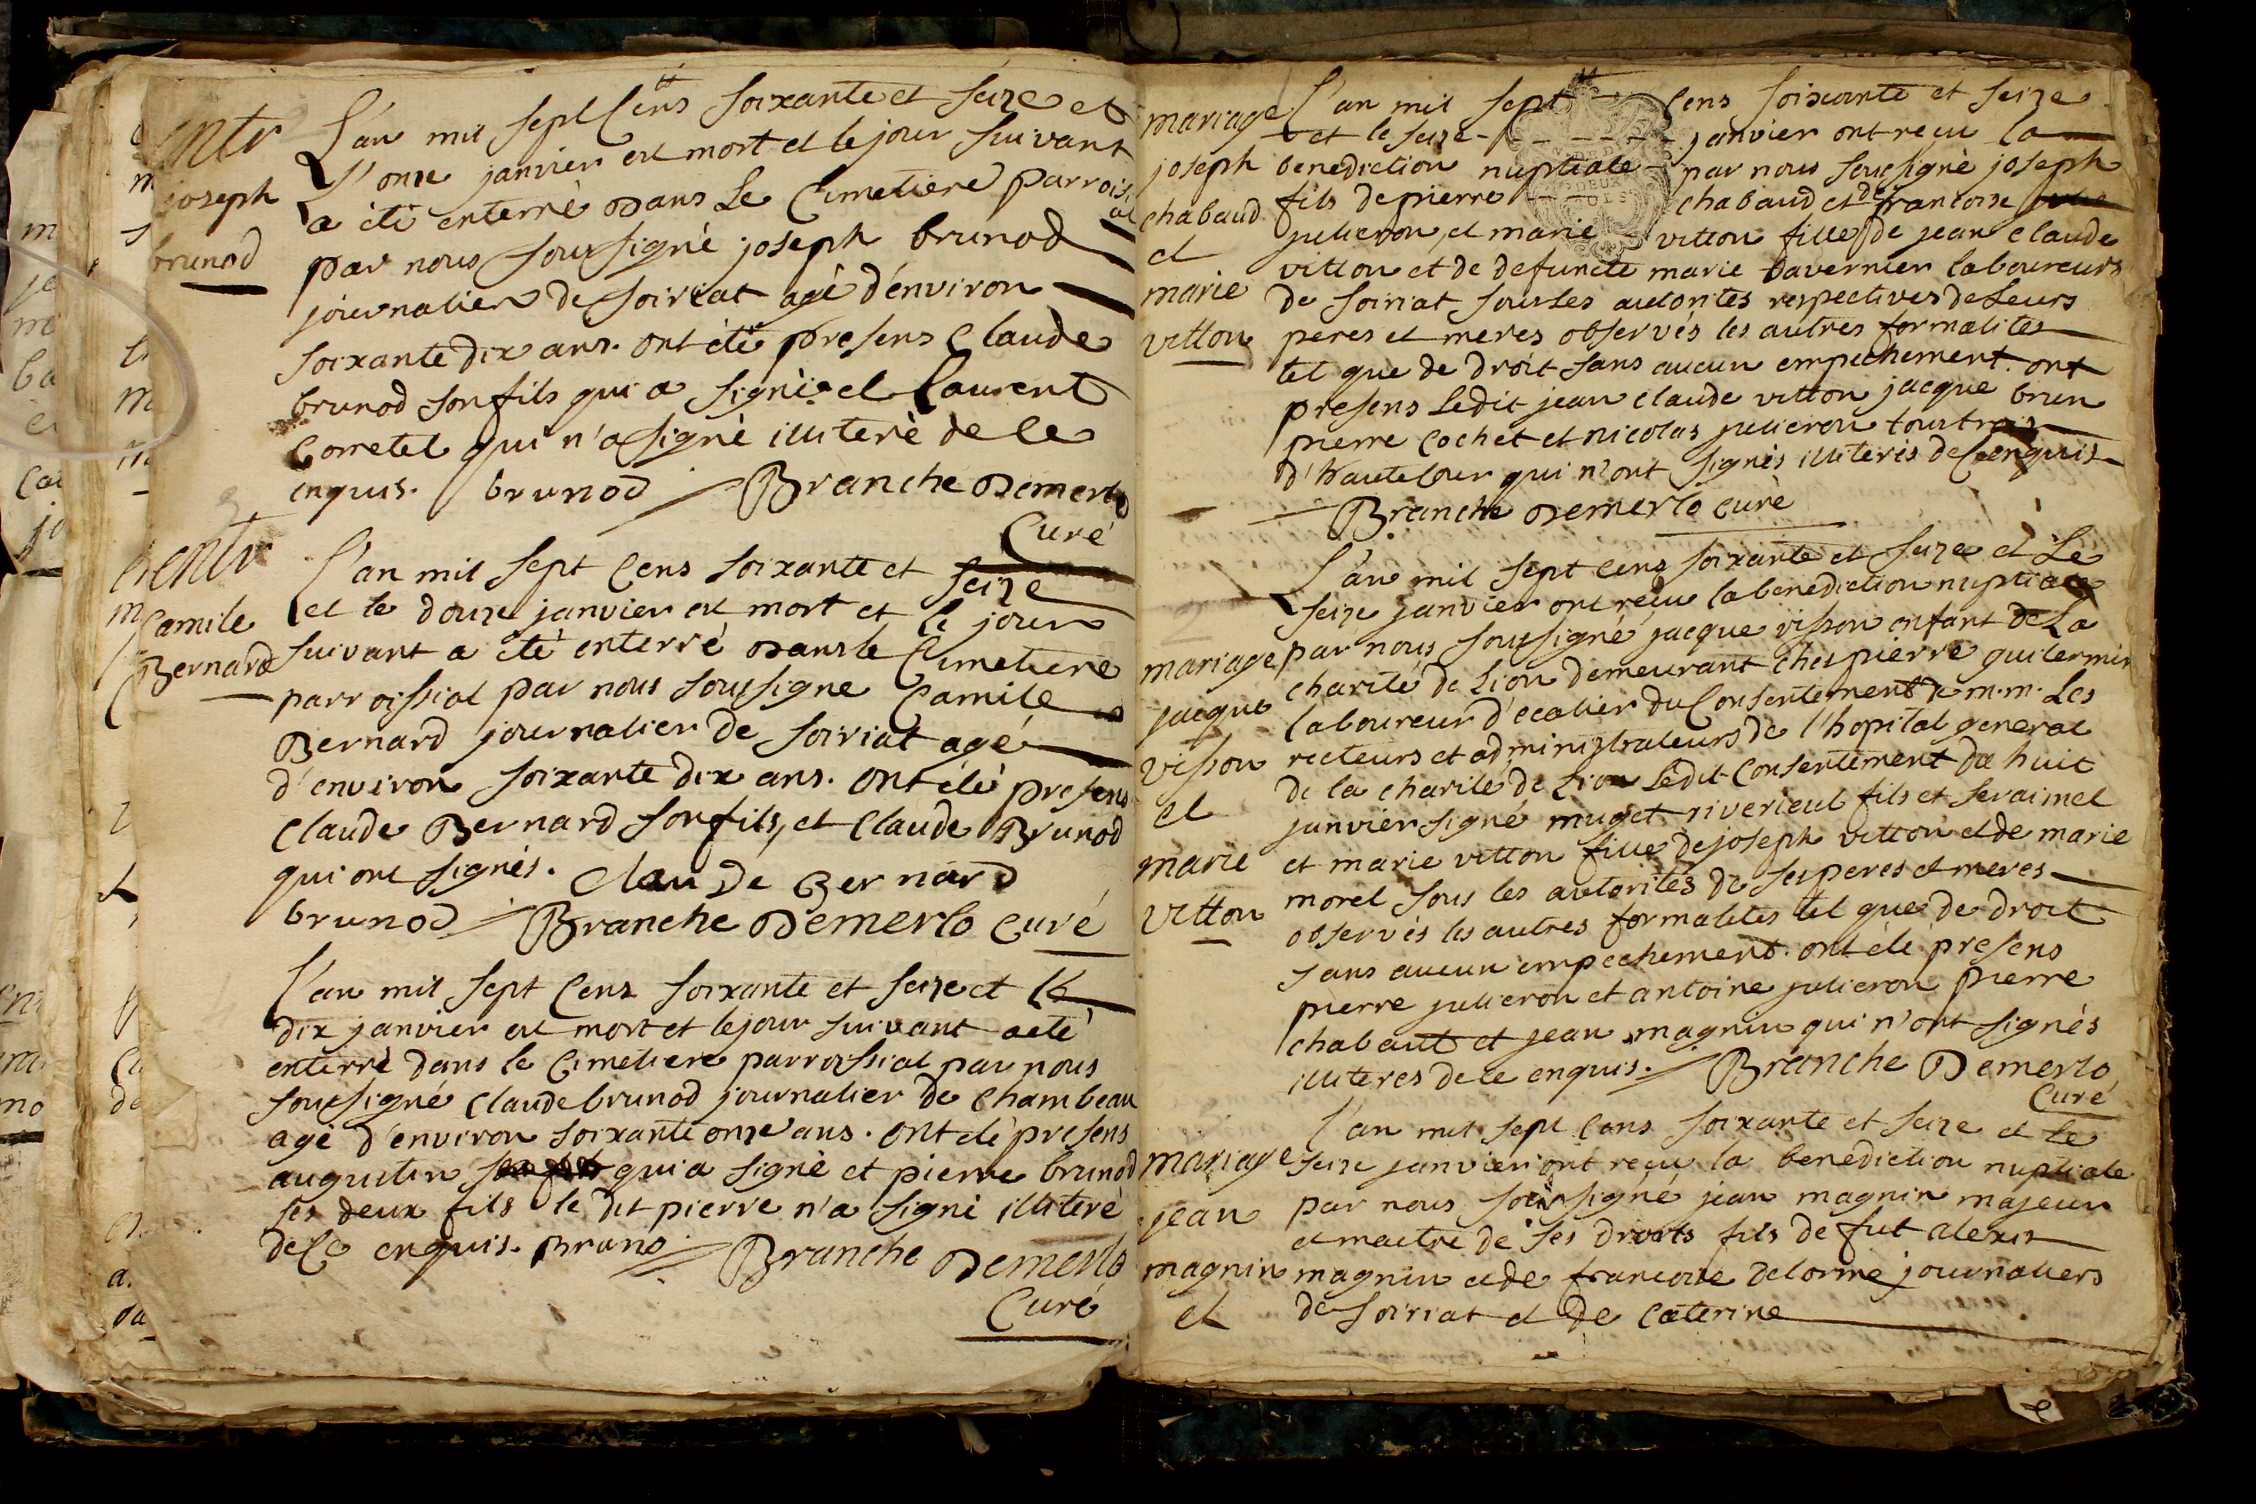 entr
joseph
brunod
L'an mil sept Cens soixante et seize et
L'onze janvier est mort et le jour suivant
a été enterré dans Le Cimetiere parroissi
al
par nous soussigné joseph brunod
journalier de soiriat agé d'environ
soixante dix ans. ont été presens Claude
brunod son fils qui a signé. et Laurent
Corretel qui n'a signé illiteré de Ce
enquis. brunod Branche Demerlo
Curé
entr
Camile
Bernard
L'an mil sept Cens soixante et seize
et le douze janvier est mort et le jour
suivant a été enterré dans le Cimetiere
parroissial par nous soussigne Camile
Bernard journalier de soiriat agé
d'environ soixante dix ans. ont été presens
Claude Bernard son fils, et Claude Brunod
qui ont signés. Claude Bernard
brunod Branche Demerlo Curé
L'an mil sept Cens soixante et seize et le
dix janvier est mort et le jour suivant a eté
enterré dans le Cimetiere parroissial par nous
soussigné Claude brunod journalier de Chambeau
agé d'environ soixante onze ans. ont eté presens
augustin son fils qui a signé et pierre brunod
ses deux fils le dit pierre n'a signé illiteré
de Ce enquis. Bruno Branche Demerlo
Curé
mariage
joseph
chabaud
et
marie
vitton
L'an mil sept Cens soixante et seize
et le seize janvier ont reçu la
benediction nuptiale par nous soussigné joseph
fils de pierre chabaud et de francoise
julieron, et marie vitton fille de jean claude
vitton et de defuncte marie tavernier laboureurs
de soiriat sous les autorités respectives de Leurs
peres et meres observés les autres formalités
tel que de droit sans aucun empechement. ont
presens Ledit jean claude vitton jacque brun
pierre Cochet et nicolas julieron tous trois
d'hautecour qui n'ont signés illiterés de Ce enquis
Branche Demerlo Curé
mariage
jacque
visson
et
marie
vitton
L'an mil sept cens soixante et seize et Le
seize janvier ont reçu la benediction nuptiale
par nous soussigné jacque visson enfant de La
charité de Lion demeurant ches pierre guilermin
laboureur d'ecalier du Consentement de m.m. Les
recteurs et administrateurs de l'hopital general
de la charité de Lion Ledit Consentement du huit
janvier signé muguet riverieul fils et feraimel
et marie vitton fille de joseph vitton et de marie
morel sous les autorités de ses peres et meres
observés les autres formalités tel que de droit
sans aucun empechement. ont été presens
pierre julieron et antoine julieron pierre
chabaut et jean magnin qui n'ont signés
illiterés de ce enquis. Branche Demerlo
Curé
mariage
jean
magnin
et
L'an mil sept Cens soixante et seize et le
seize janvier ont reçu la benediction nuptiale
par nous soussigné jean magnin majeur
et maitre de ses droits fils de fut alexis
magnin et de francoise delorme journaliers
de soiriat et de Caterine